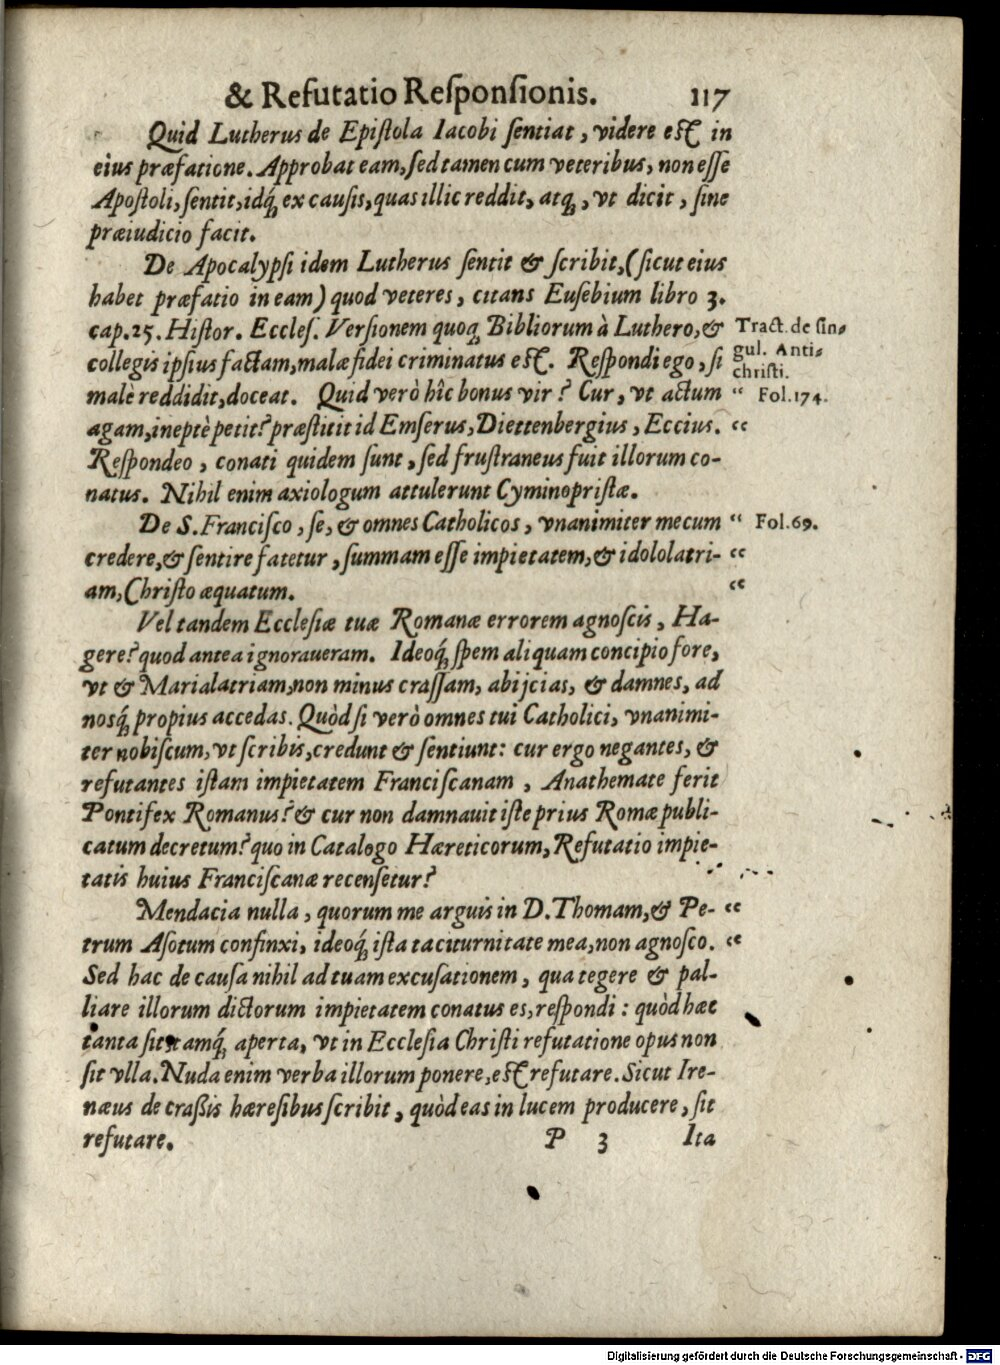 & Refutatio Reſponſionis. 117
Quid Lutherus de Epiſtola Iacobi ſentiat, videre eſt in
eius præfatione. Approbat eam, ſed tamen cum veteribus, non eſſe
Apoſtoli, ſentit, idq́ ex cauſis, quas illic reddit, atq, vt dicit, ſine
præiudicio facit.
De Apocalypſi idem Lutherus ſentit & ſcribit, (ſicut eius
habet præfatio in eam) quod veteres, citans Euſebium libro 3.
cap. 25. Hiſtor. Eccleſ. Verſionem quoq Bibliorum à Luthero, & Tract. de ſin-
collegis ipſius factam, malæ fidei criminatus eſt. Reſpondi ego, ſi gul. Anti-
christi.
malè reddidit, doceat. Quid verò hîc bonus vir? Cur, vt actum “ Fol. 174.
agam, ineptè petit? præſtitit id Emſerus, Diettenbergius, Eccius. “
Reſpondeo, conati quidem ſunt, ſed fruſtraneus fuit illorum co-
natus. Nihil enim axiologum attulerunt Cyminopriſtæ.
De S. Franciſco, ſe, & omnes Catholicos, vnanimiter mecum “ Fol. 69.
credere, & ſentire fatetur, ſummam eſſe impietatem, & idololatri- “
am, Chriſto æquatum. “
Vel tandem Eccleſiæ tuæ Romanæ errorem agnoſcis, Ha-
gere? quod antea ignoraueram. Ideoq́ ſpem aliquam concipio fore,
vt & Marialatriam, non minus craſſam, abijcias, & damnes, ad
nosq́ propius accedas. Quòd ſi verò omnes tui Catholici, vnanimi-
ter nobiſcum, vt ſcribis, credunt & ſentiunt: cur ergo negantes, &
refutantes iſtam impietatem Franciſcanam, Anathemate ferit
Pontifex Romanus? & cur non damnauit iſte prius Romæ publi-
catum decretum? quo in Catalogo Hæreticorum, Refutatio impie-
tatis huius Franciſcanæ recenſetur?
Mendacia nulla, quorum me arguis in D. Thomam, & Pe- “
trum Aſotum confinxi, ideoq́ iſta taciturnitate mea, non agnoſco. “
Sed hac de cauſa nihil ad tuam excuſationem, qua tegere & pal-
liare illorum dictorum impietatem conatus es, reſpondi: quòd hæc
tanta ſit tamq́ aperta, vt in Eccleſia Chriſti refutatione opus non
ſit vlla. Nuda enim verba illorum ponere, eſt refutare. Sicut Ire-
næus de craßis hæreſibus ſcribit, quòd eas in lucem producere, ſit
refutare. P 3 Ita
Digitalisierung gefördert durch die Deutsche Forschungsgemeinschaft - DFG